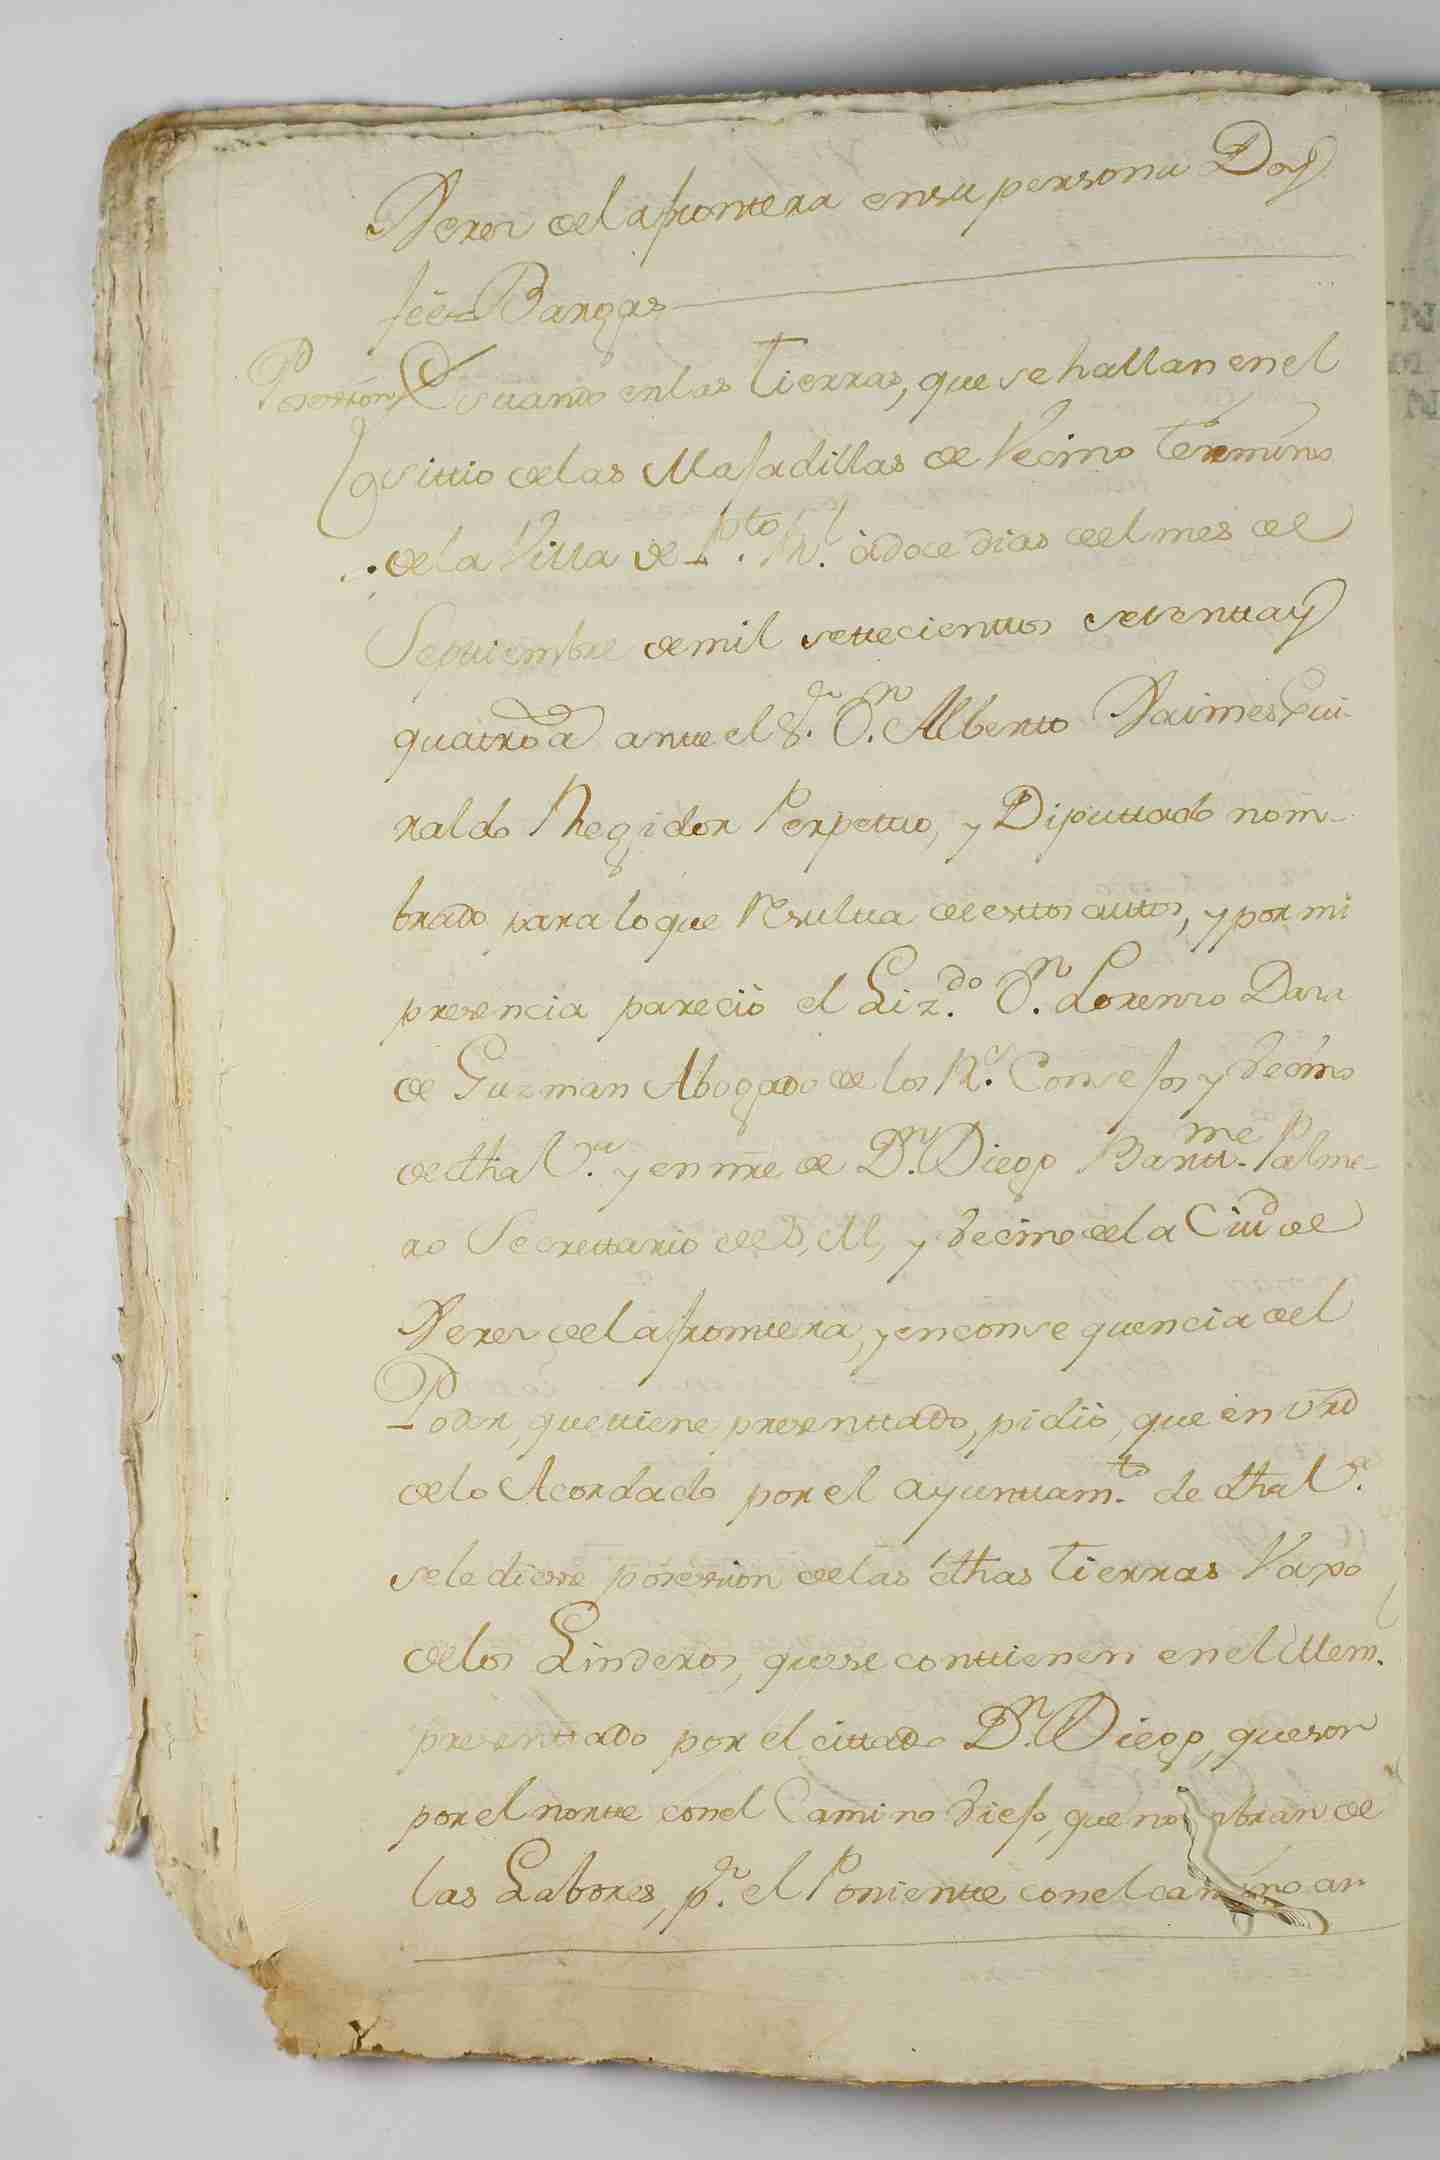 Xerez de la frontera en su persona Doy
feé = Bargas
Posesion Estando en las Tierras, que se hallan en el
sittio de las Majadillas de Vecino termino
de la Villa de Pto. Rl. à doce dias de el mes de
Septtiembre de mil settecienttos settentta y
quatro a antte el Sr. Dn. Albertto Xaimes Gui-
raldo Regidor Perpettuo, y Diputtado nom-
brado para lo que resultta de esttos auttos, y por mi
presencia pareciò el Lizdo. Dn. Lorenzo Daza
de Guzman Abogado de los Rs. Consejos y Vecino
de dha Va. y en nre de Dn. Diego Barttme. Palme-
ro Secrettario de S, M, y Vecino de la Ciud de
Xerez de la frontera, y en consequencia de el
Poder, que ttiene presenttado, pidiò, que en vrd
de lo Acordado por el ayunttamto. de dha Va.
se le diesse posession de las dhas Tierras Vaxo
de los Linderos, que se conttienen en el Mem.
presenttado por el cittado Dn. Diego, que son
por el nortte con el Camino Viejo, que nombran de
las Labores, pr. el Ponientte con el camino an